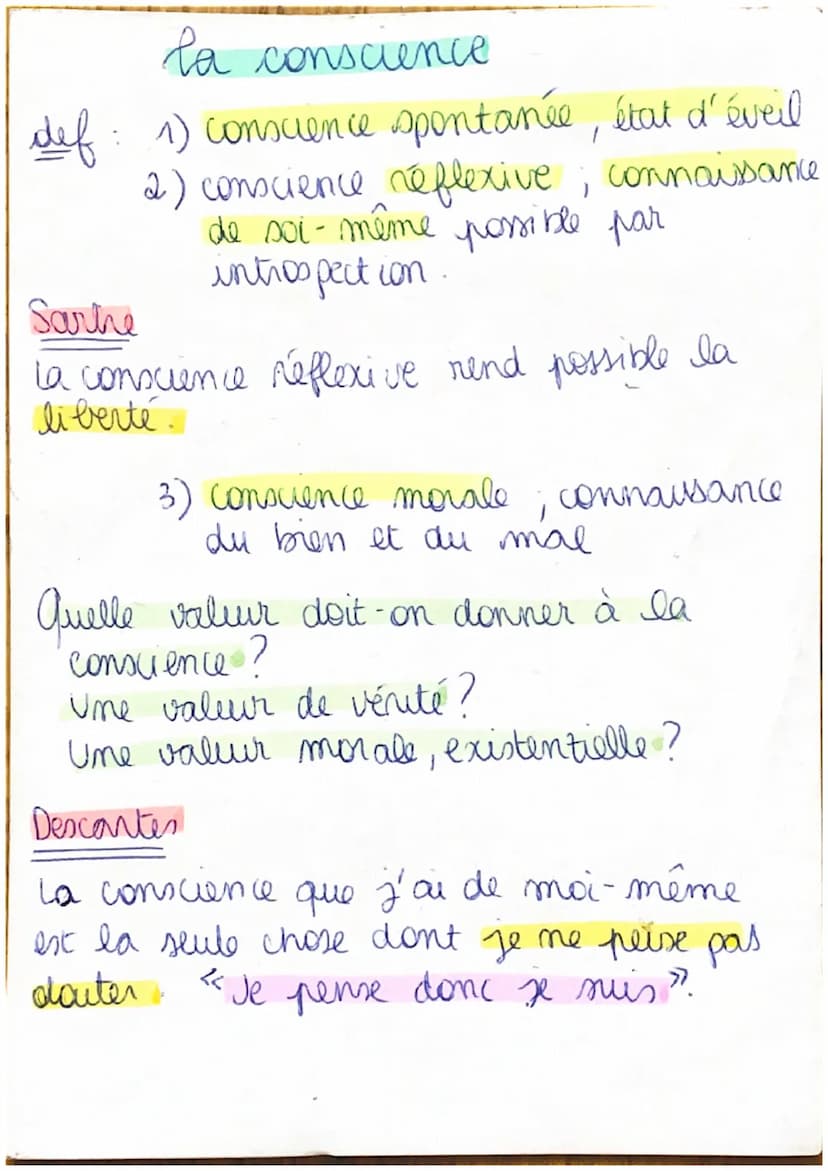 La conscience
def : 1) conscience spontanée, état d'éveil
2) conscience réflexive ; connaissance
de soi-même possible par
introspection.
Sartre
La conscience réflexive rend possible la
liberté.
3) conscience morale ; connaissance
du bien et du mal
Quelle valeur doit-on donner à la
conscience ?
Une valeur de vérité ?
Une valeur morale, existentielle ?
Descartes
La conscience que j'ai de moi-même
est la seule chose dont je ne peise pas
douter. « Je pense donc je suis ».